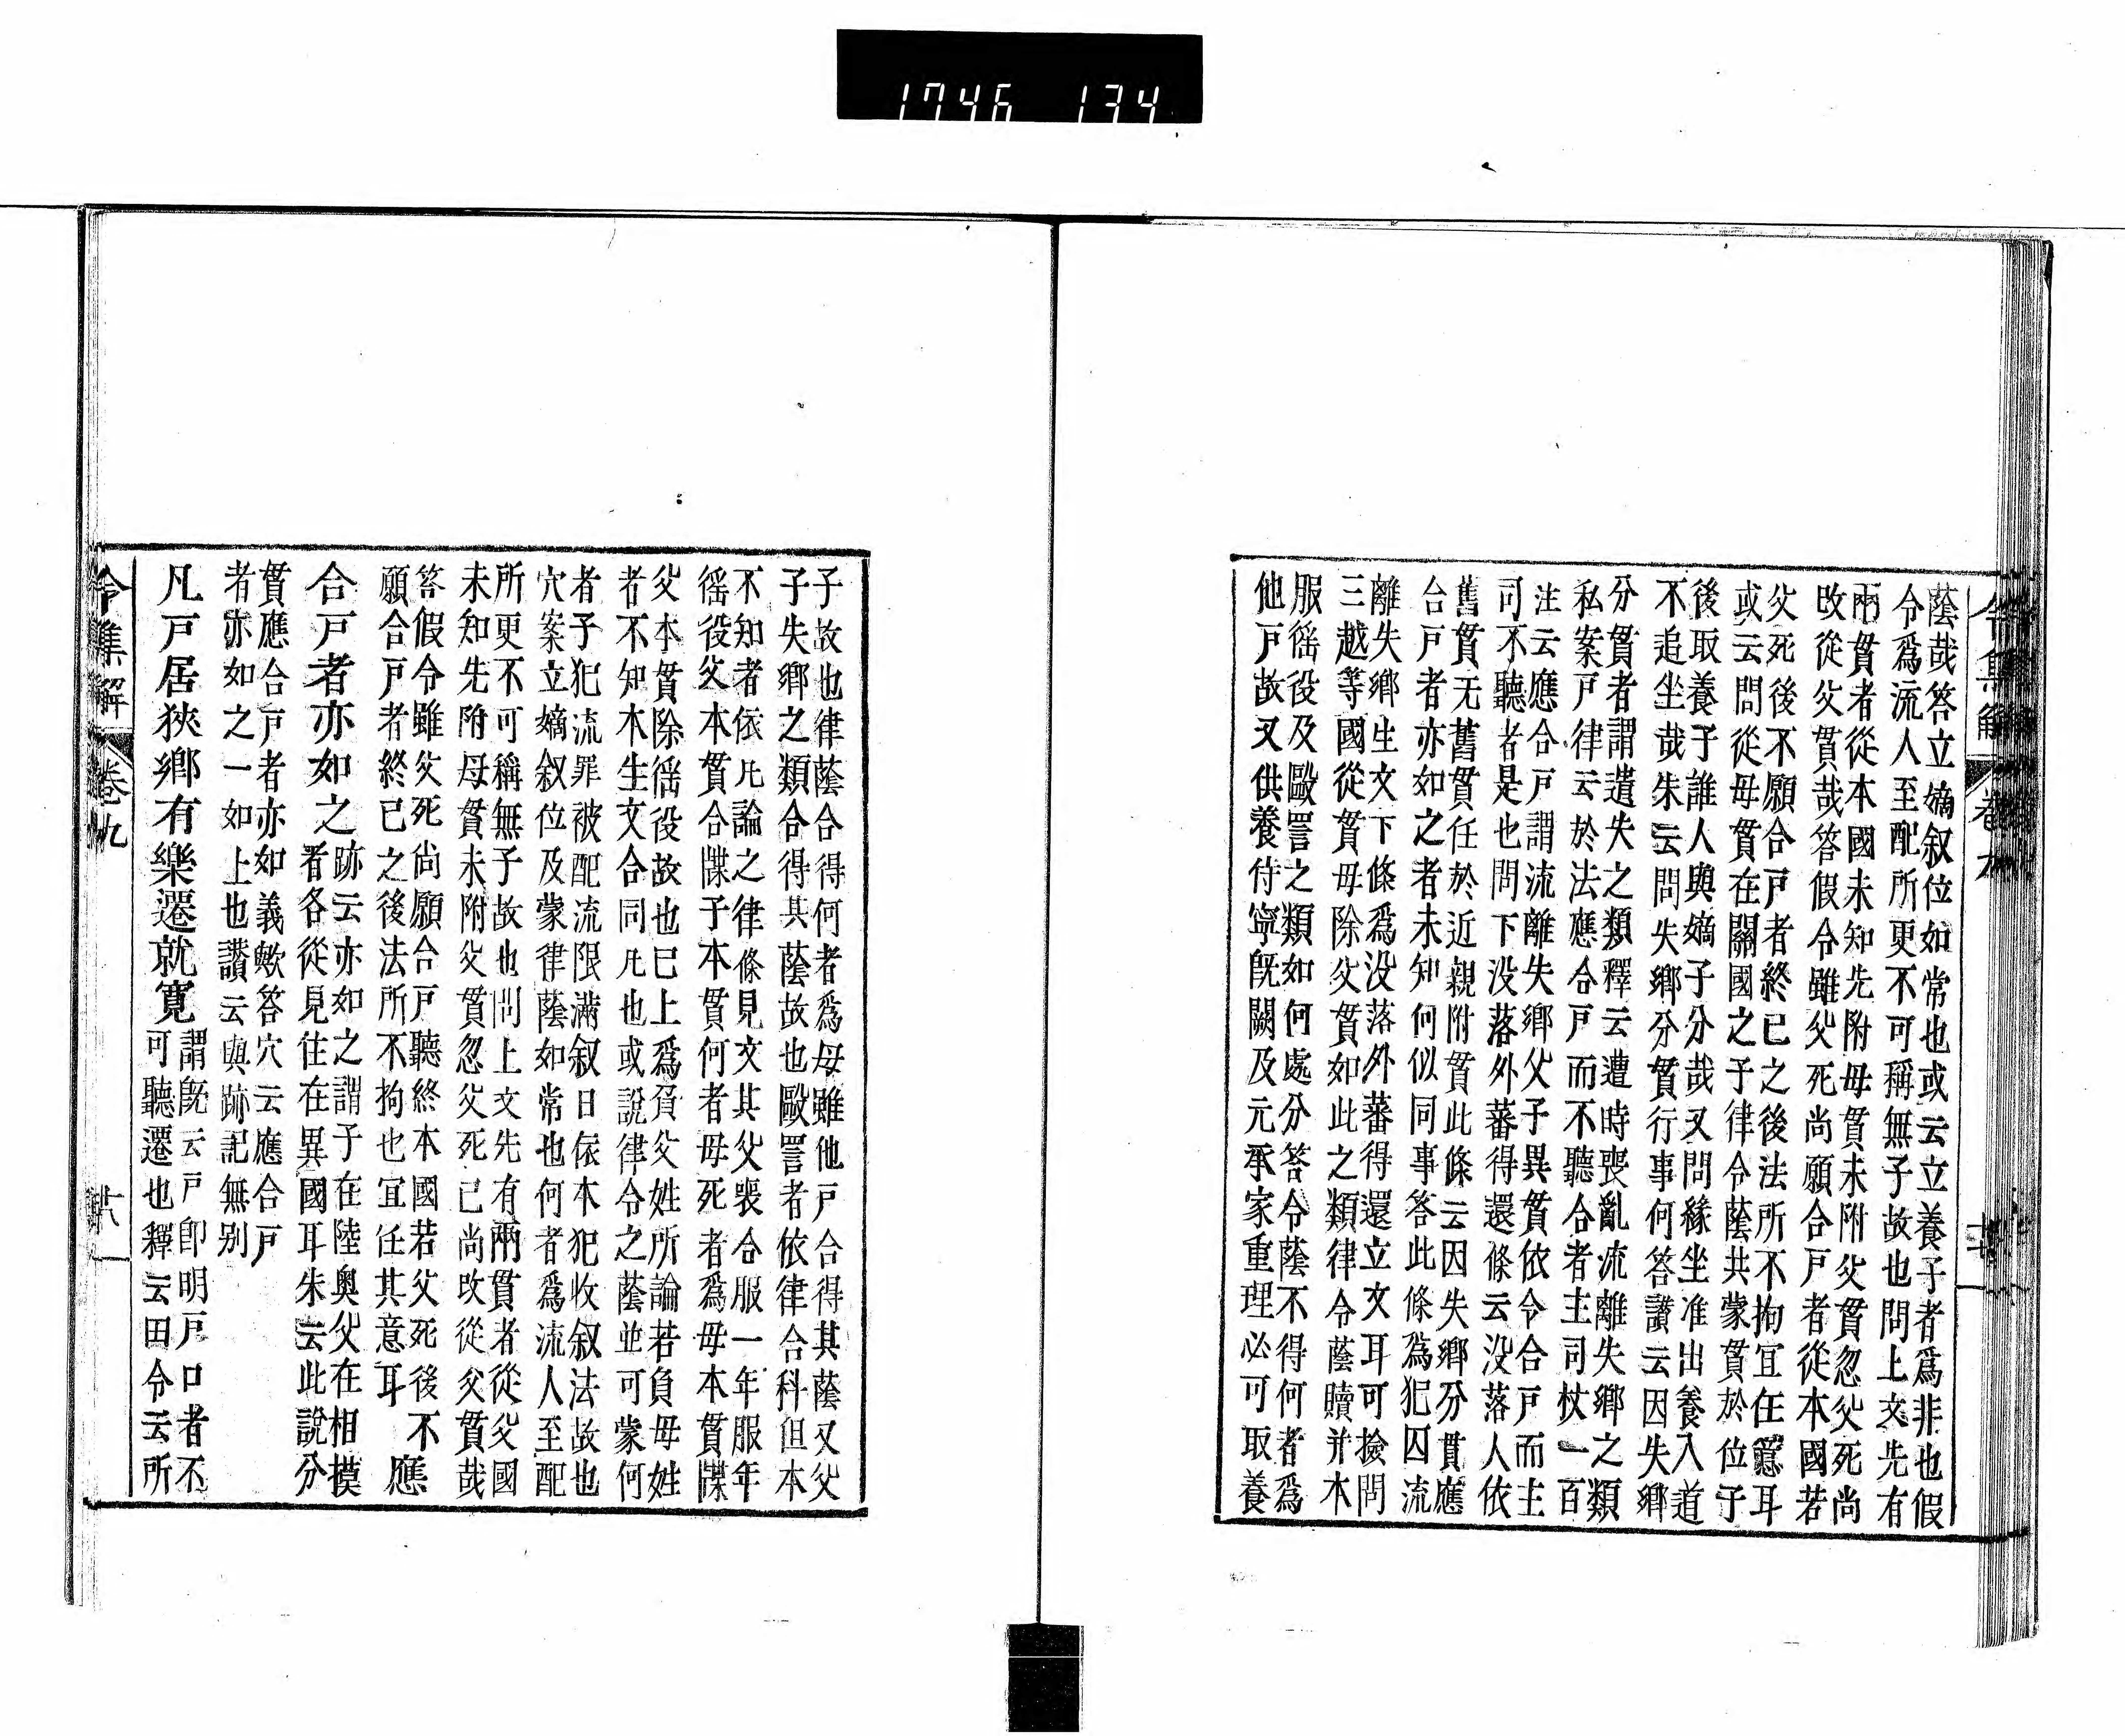 1746 134
蔭哉答立嫡叙位如常也或云立養子者爲非也假
令爲流人至配所更不可稱無子故也問上文先有
兩貫者從本國未知先附母貫未附父貫忽父死尚
改從父貫哉答假令雖父死尚願合戸者從本國若
父死後不願合戸者終已之後法所不拘冝任意耳
或云問從母貫在關國之子律令蔭共蒙貫於位子
後取養子誰人與嫡子分哉又問緣坐准出養入道
不追坐哉朱云問失鄉分貫行事何答讃云因失鄉
分貫者謂遺失之類釋云遭時喪亂流離失鄉之類
私案戸律云於法應合戸而不聽合者主司杖一百
注云應合戸謂流離失鄉父子異貫依令合戸而主
司不聽者是也問下没落外蕃得還條云没落人依
舊貫无舊貫任於近親附貫此條云因失鄉分貫應
合戸者亦如之者未知何似同事答此條為犯囚流
離失鄉生文下條爲没落外蕃得還立文耳可撿問
三越等國從貫毋除父貫如此之類律令蔭贖并本
服徭役及毆詈之類如何處分答令蔭不得何者爲
他戸故又供養侍寧旣闕及元承家重理必可取養
令集解 卷九
子故也律蔭合得何者爲母雖他戸合得其蔭又父
子失鄉之類合得其蔭故也毆詈者依律合科但本
不知者依凡論之律條見文其父喪合服一年服年
徭役父本貫合牒子本貫何者母死者爲母本貫牒
父本貫除徭役故也已上爲負父姓所論若負母姓
者不知本生文合同凡也或說律令之蔭並可蒙何
者子犯流罪被配流限滿叙日依本犯收叙法故也
穴案立嫡叙位及蒙律蔭如常也何者爲流人至配
所更不可稱無子故也問上文先有兩貫者從父國
未知先附母貫未附父貫忽父死已尚改從父貫哉
答假令雖父死尚願合戸聽終本國若父死後不
願合戸者終已之後法所不拘也冝任其意耳 應
合戸者亦如之跡云亦如之謂子在陸奥父在相摸
者各從見住在異國耳朱云此說分
貫應合戸者亦如義歟答穴云應合戸
者亦如之一如上也讃云與跡記無别
凡戸居狹鄉有樂遷就寛謂旣云戸卽明戸口者不
可聽遷也釋云田令云所
令集解 卷九 廿八